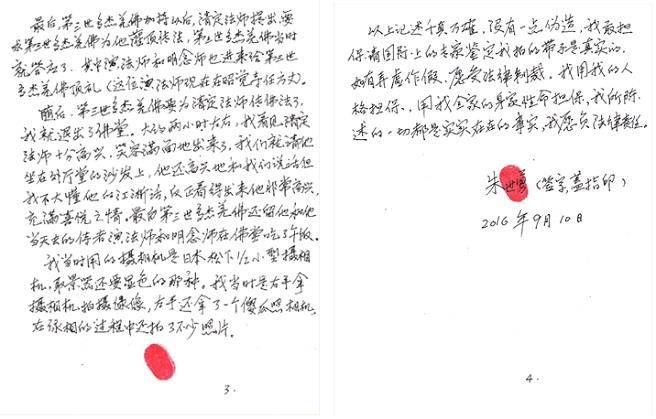 最后,第三世多杰羌佛加持以后,清定法师提出要
第三世多杰羌佛为他灌顶传法,第三世多杰羌佛当时
就答应了。其中演法师和明念师也进来给第三世
多杰羌佛顶礼(这位演法师现在在昭觉寺任方丈)。
随后,第三世多杰羌佛要为清定法师传佛法了,
我就退出了佛堂。大约两小时左右,我看见清定
法师十分高兴,笑容满面地出来了,我们就请他
坐在外厅堂的沙发上,他还高兴地和我们说话但
我不大懂他的江浙话,反正看得出来他非常高兴,
充满喜悦之情。最后第三世多杰羌佛还留他和他
当天去的侍者演法师和明念师在佛堂吃了午饭。
我当时用的摄相机是日本松下1/2小型摄相
机,取景器还要显色的那种。我当时是右手拿
摄相机拍摄录像,左手还拿了一个傻瓜照相机,
在录相的过程中还拍了不少照片。
3.
以上记述千真万确,没有一点伪造,我敢担
保请国际上的专家鉴定我拍的带子是真实的。
如有弄虚作假,愿受法律制裁。我用我的人
格担保、用我全家的身家性命担保,我所陈
述的一切都是实实在在的事实,我愿负法律责任。
朱世勇(签字,盖指印)
2016年9月10日
4.